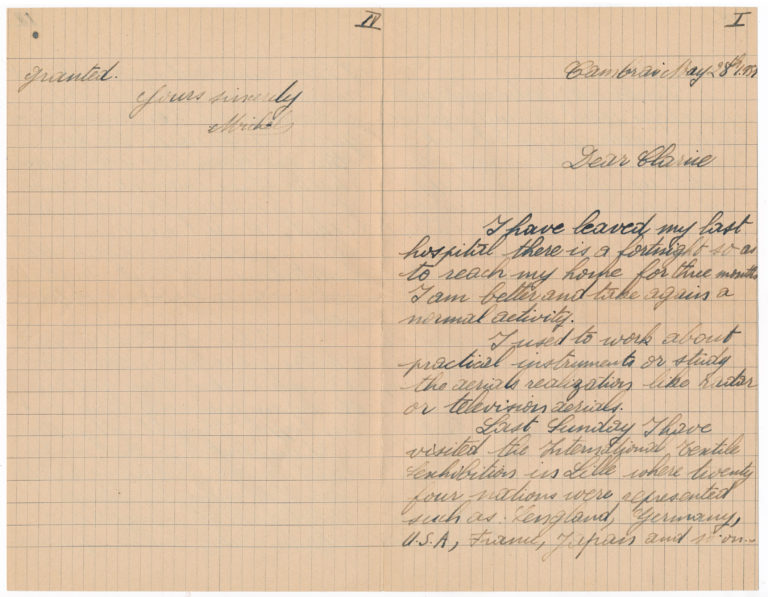 IV
granted.
Yours sincerely
Michel
I
Cambrai May 28th
Dear Claire
I have leaved my last
hospital there is a fortnight so as
to reach my home for three months
I am better and take again a
normal activity.
I used to work about
practical instruments or study
the aerials realization like radar
or television aerials.
Last Sunday I have
visited the International Textile
Exhibition in Lille where twenty
four nations were represented
such as: England, Germany,
U.S.A, France, Japan and so on...